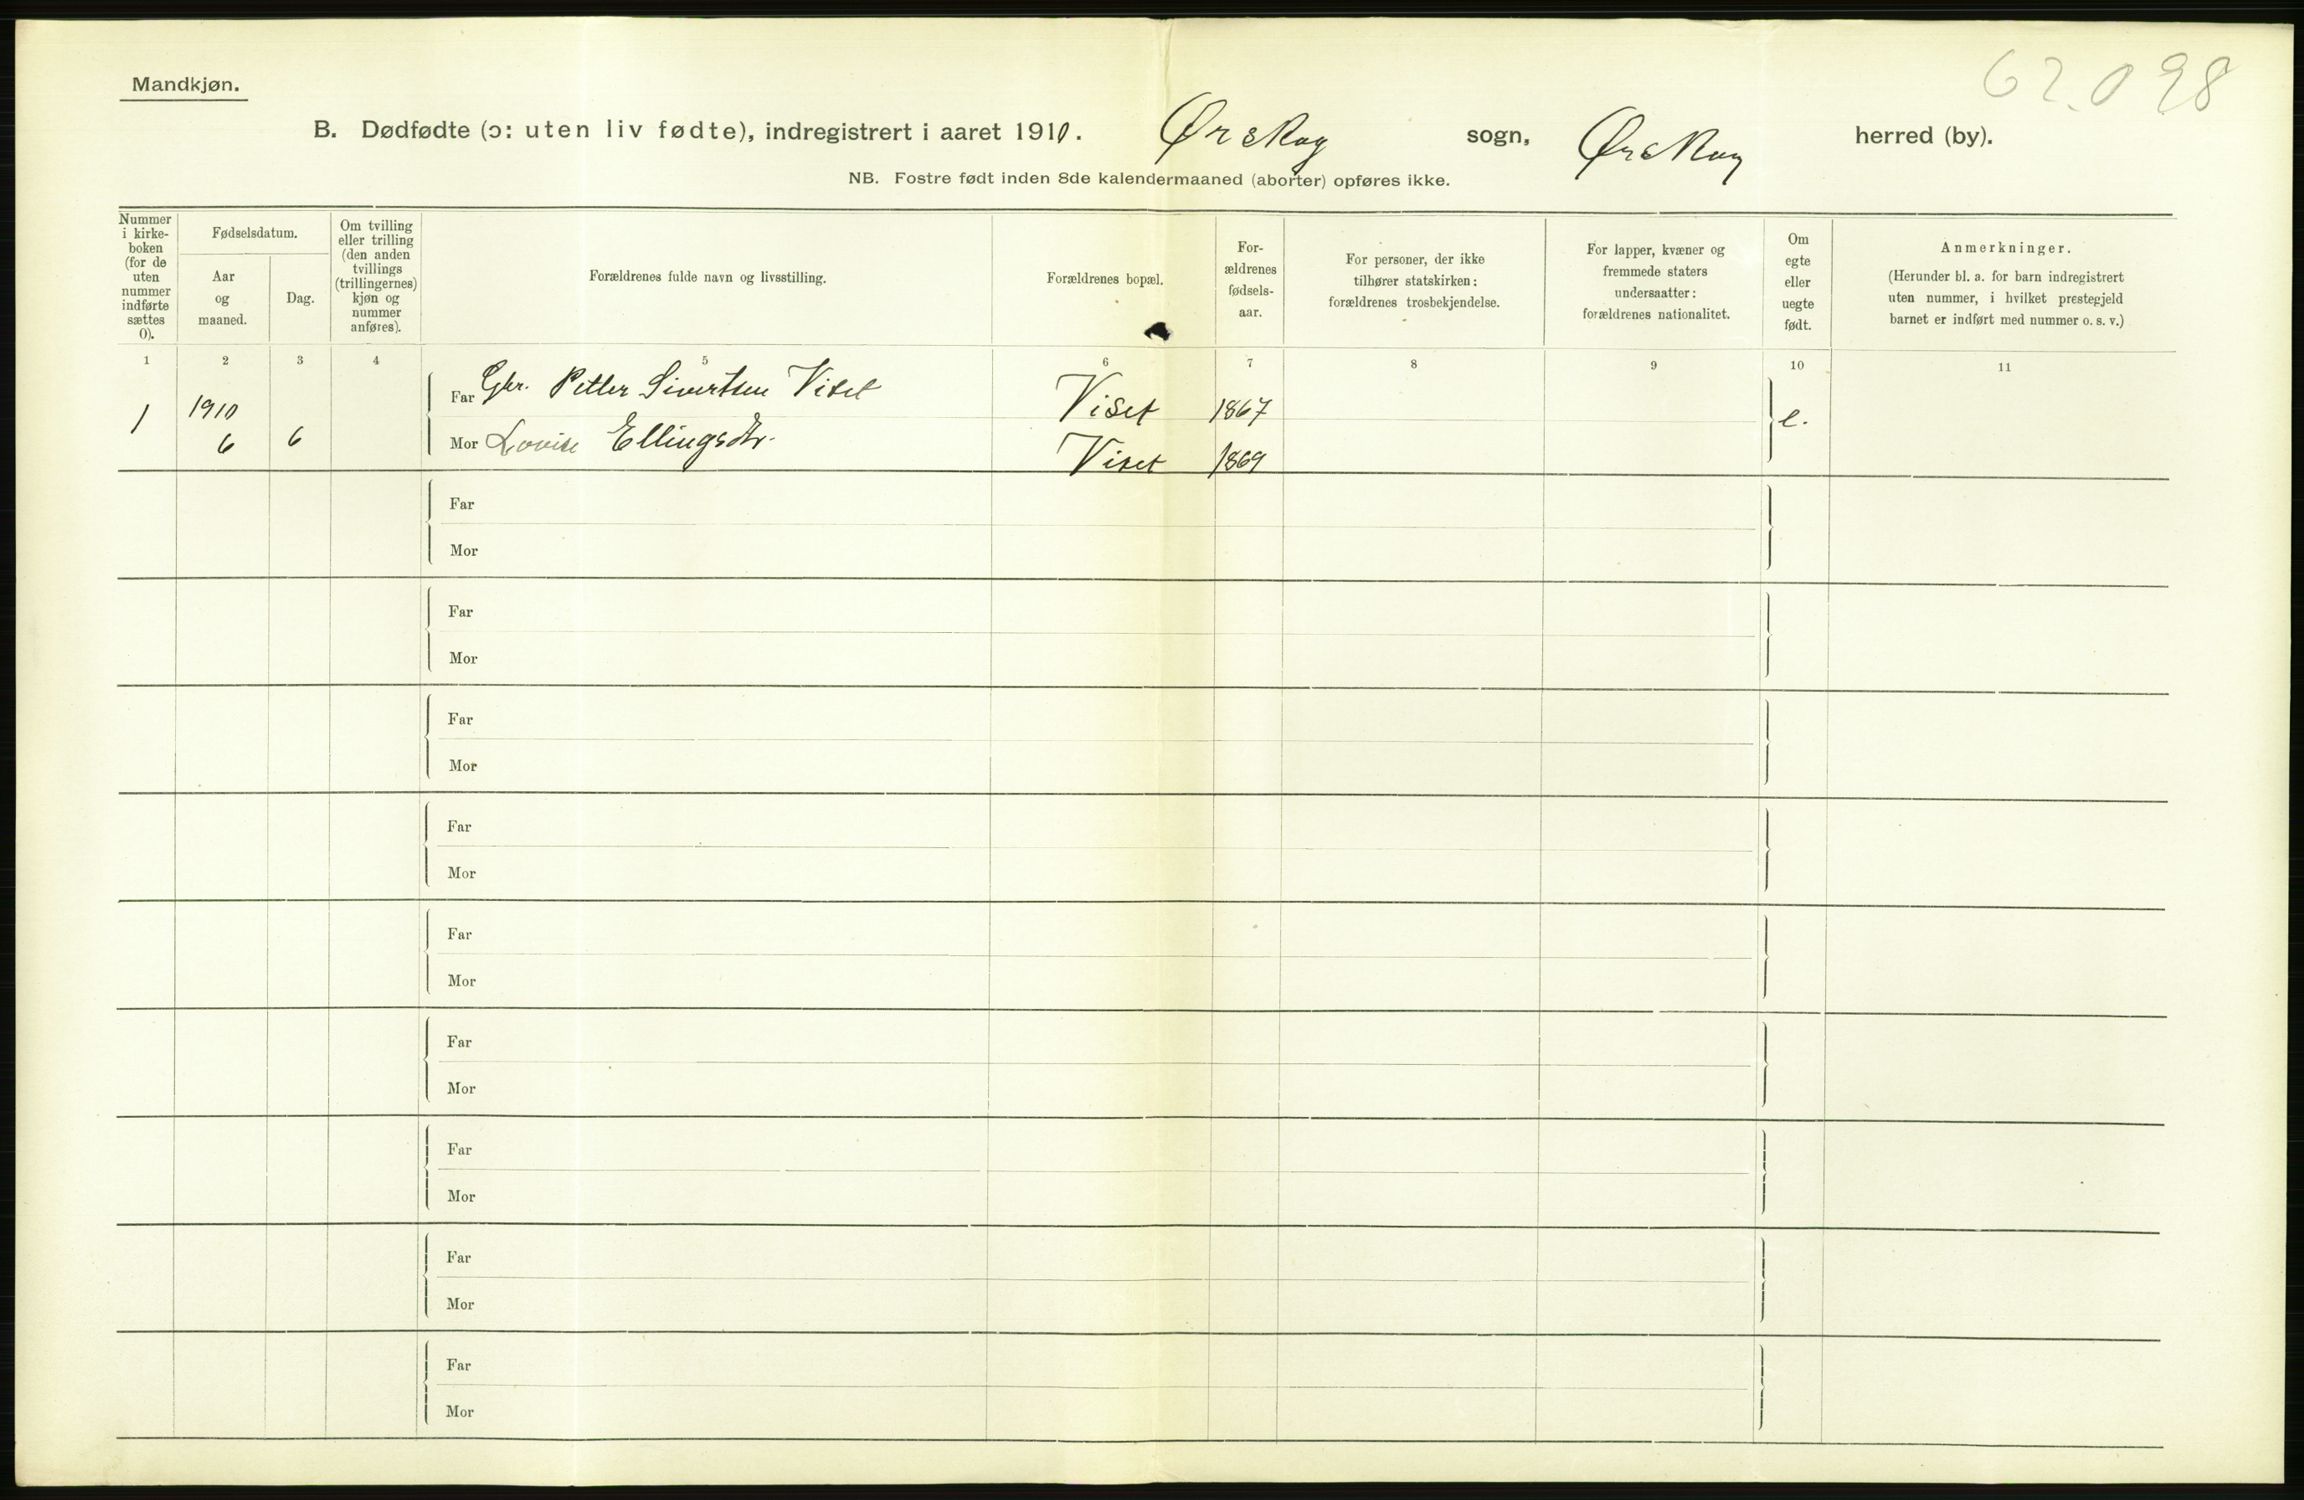 62.098
Mandkjøn.
B. Dødfødte (ɔ: uten liv fødte), indregistrert i aaret 1910. Ørskog sogn, Ørskog herred (by).
NB. Fostre født inden 8de kalendermaaned (aborter) opføres ikke.
Nummer
i kirke-
boken
(for de
uten
nummer
indførte
sættes
0).
Fødselsdatum.
Aar
og
maaned.
Dag.
Om tvilling
eller trilling
(den anden
tvillings
(trillingernes)
kjøn og
nummer
anføres).
Forældrenes fulde navn og livsstilling.
Forældrenes bopæl.
For-
ældrenes
fødsels-
aar.
For personer, der ikke
tilhører statskirken:
forældrenes trosbekjendelse.
For lapper, kvæner og
fremmede staters
undersaatter:
forældrenes nationalitet.
Om
egte
eller
uegte
født.
Anmerkninger.
(Herunder bl. a. for barn indregistrert
uten nummer, i hvilket prestegjeld
barnet er indført med nummer o. s. v.)
1 2 3 4 5 6 7 8 9 10 11
1 1910 Far Gbr. Petter Sivertsen Viset Viset 1867 e.
6 6 Mor Lovise Ellingsdtr. Viset 1869
Far
Mor
Far
Mor
Far
Mor
Far
Mor
Far
Mor
Far
Mor
Far
Mor
Far
Mor
Far
Mor